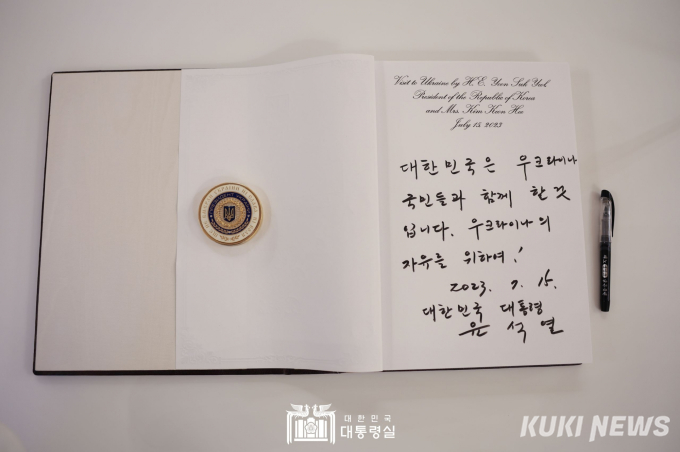 Visit to Ukraine by H. E. Yoon Suk Yeol
President of the Republic of Korea
and Mrs. Kim Keon Hee
July 15 2023
대한민국은 우크라이나
국민들과 함께 할 것
입니다. 우크라이나의
자유를 위하여!
2023. 7. 15.
대한민국 대통령
윤석열
대한민국
대통령실
KUKI NEWS